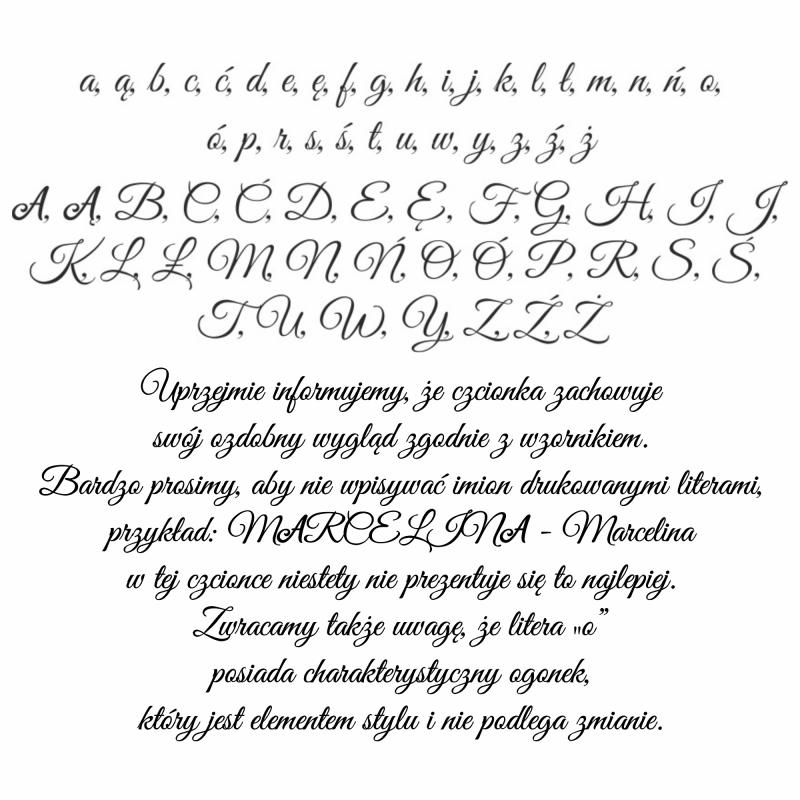 a, ą, b, c, ć, d, e, ę, f, g, h, i, j, k, l, ł, m, n, ń, o,
ó, p, r, s, ś, t, u, w, y, z, ź, ż
A, Ą, B, C, Ć, D, E, Ę, F, G, H, I, J,
K, L, Ł, M, N, Ń, O, Ó, P, R, S, Ś,
T, U, W, Y, Z, Ź, Ż
Uprzejmie informujemy, że czcionka zachowuje
swój ozdobny wygląd zgodnie z wzornikiem.
Bardzo prosimy, aby nie wpisywać imion drukowanymi literami,
przykład: MARCELINA - Marcelina
w tej czcionce niestety nie prezentuje się to najlepiej.
Zwracamy także uwagę, że litera „o”
posiada charakterystyczny ogonek,
który jest elementem stylu i nie podlega zmianie.